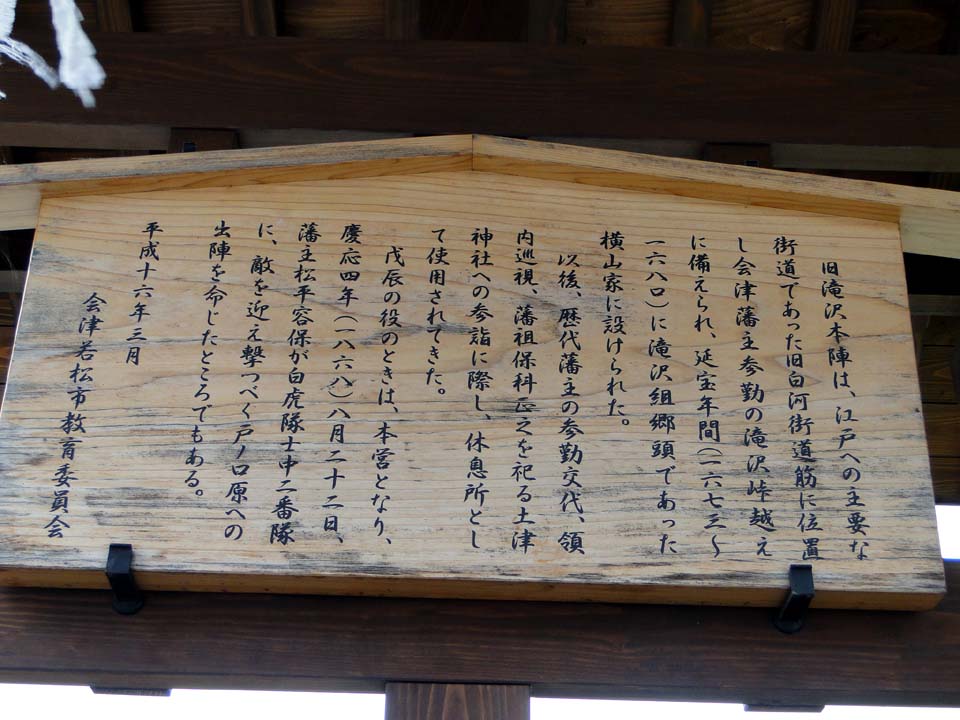 旧滝沢本陣は、江戸への主要な
街道であった旧白河街道筋に位置
し会津藩主参勤の滝沢峠越え
に備えられ、延宝年間(一六七三〜
一六八〇)に滝沢組郷頭であった
横山家に設けられた。
以後、歴代藩主の参勤交代、領
内巡視、藩祖保科正之を祀る土津
神社への参詣に際し、休息所とし
て使用されてきた。
戊辰の役のときは、本営となり、
慶応四年(一八六八)八月二十二日、
藩主松平容保が白虎隊士中二番隊
に、敵を迎え撃つべく戸ノ口原への
出陣を命じたところでもある。
平成十六年三月
会津若松市教育委員会